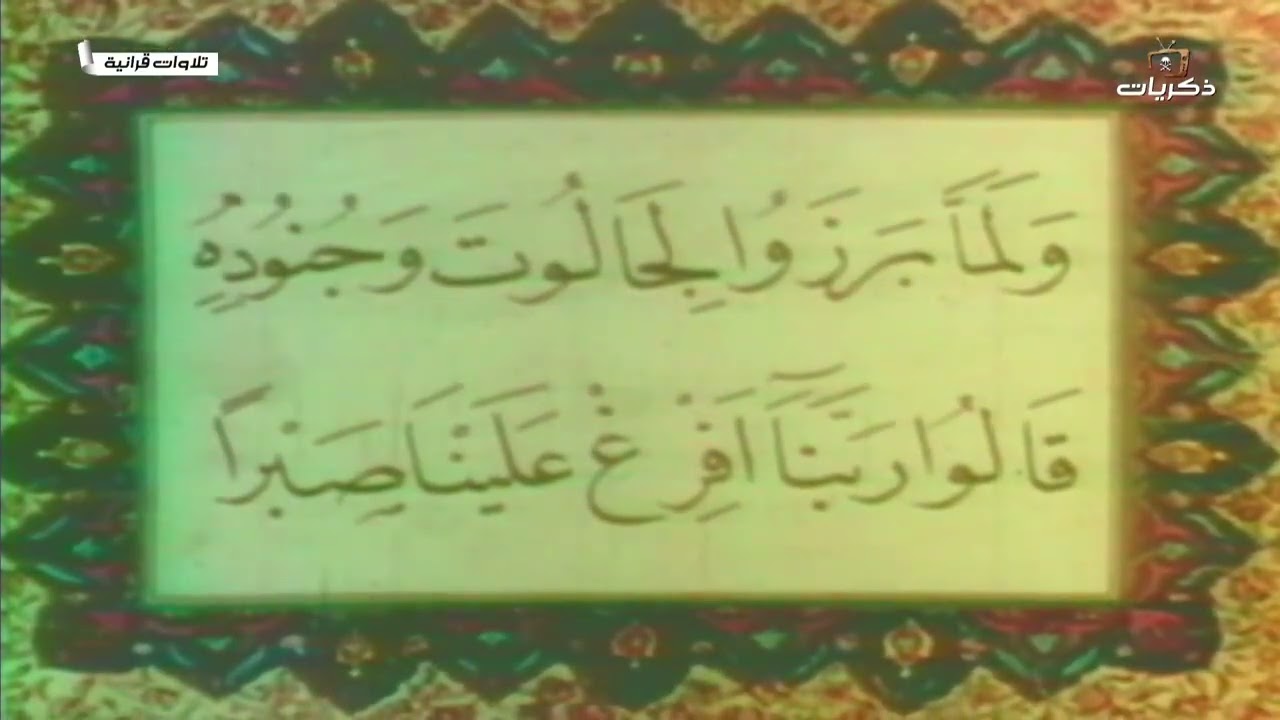 تلاوات قرآنية
ذكريات
وَلَمَّا بَرَزُوا لِجَالُوتَ وَجُنُودِهِ
قَالُوا رَبَّنَآ اَفْرِغْ عَلَيْنَا صَبْرًا